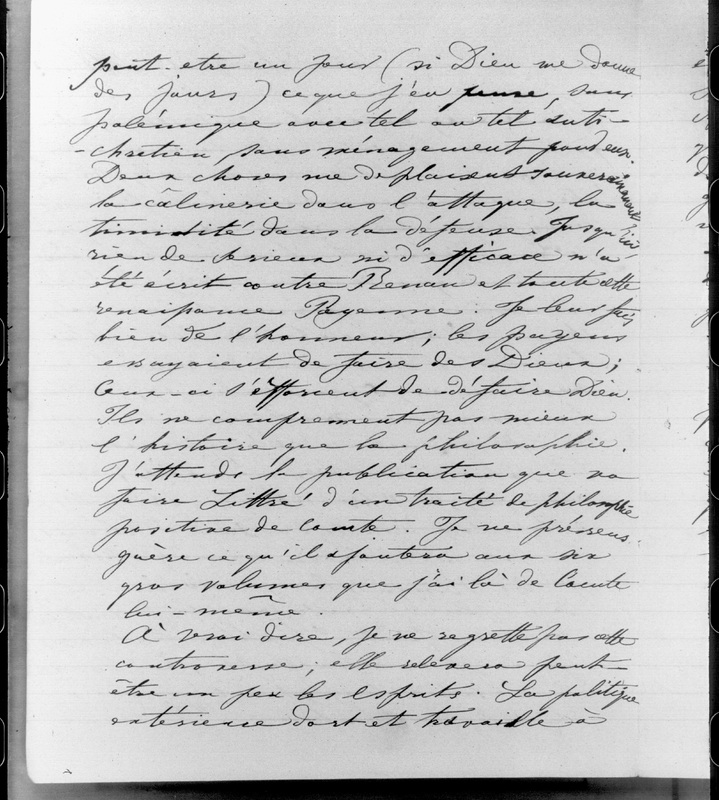 peut-etre un jour (si Dieu me donne
des jours) ce que j'en pense, sans
polémique avec tel ou tel anti-
-chretien, sans ménagement pour eux.
Deux choses me déplaisent souverainement ici
la câlinerie dans l'attaque, la
timidité dans la défense. Jusqu'ici
rien de serieux ni d'efficace n'a
été écrit contre Renan et toute cette
renaissance Payenne. Je leur fais
bien de l'honneur; les payens
essayaient de faire des Dieux;
Ceux-ci s'efforcent de défaire Dieu.
Ils ne comprennent pas mieux
l'histoire que la philosophie.
J'attends la publication que va
faire Littré d'un traité de philosophie
positive de Comte. Je ne pressens
guère ce qu'il ajoutera aux six
gros volumes que j'ai là de Comte
lui-même.
À vrai dire, je ne regrette pas cette
controverse; elle relevera peut-
être un peu les esprits. La politique
extérieure dort et travaille à